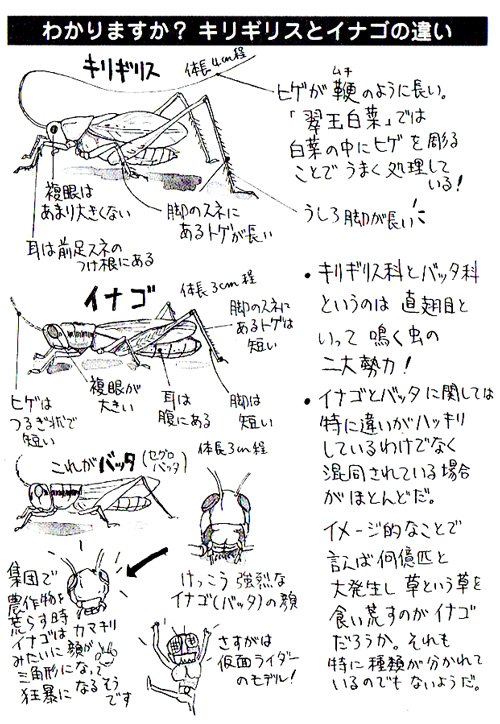 わかりますか？ キリギリスとイナゴの違い
キリギリス
体長4cm程
ヒゲが鞭のように長い。
ムチ
「翠玉白菜」では
白菜の中にヒゲを彫る
ことでうまく処理して
いる！
うしろ脚が長い
複眼は
あまり大きくない
脚のスネに
あるトゲが長い
耳は前足スネの
つけ根にある
イナゴ
体長3cm程
脚のスネに
あるトゲは
短い
ヒゲは
つるぎ状で
短い
複眼が
大きい
耳は
腹にある
脚は
短い
・キリギリス科とバッタ科
というのは直翅目と
いって鳴く虫の
二大勢力！
・イナゴとバッタに関しては
特に違いがハッキリ
しているわけでなく
混同されている場合
がほとんどだ。
イメージ的なことで
言えば何億匹と
大発生し草という草を
食い荒すのがイナゴ
だろうか。それも
特に種類が分かれて
いるのでもないようだ。
これがバッタ（セグロバッタ）
体長3cm程
けっこう強烈な
イナゴ（バッタ）の顔
集団で
農作物を
荒らす時
イナゴはカマキリ
みたいに顔が
三角形になって
狂暴になるそう
です
さすがは
仮面ライダー
のモデル！